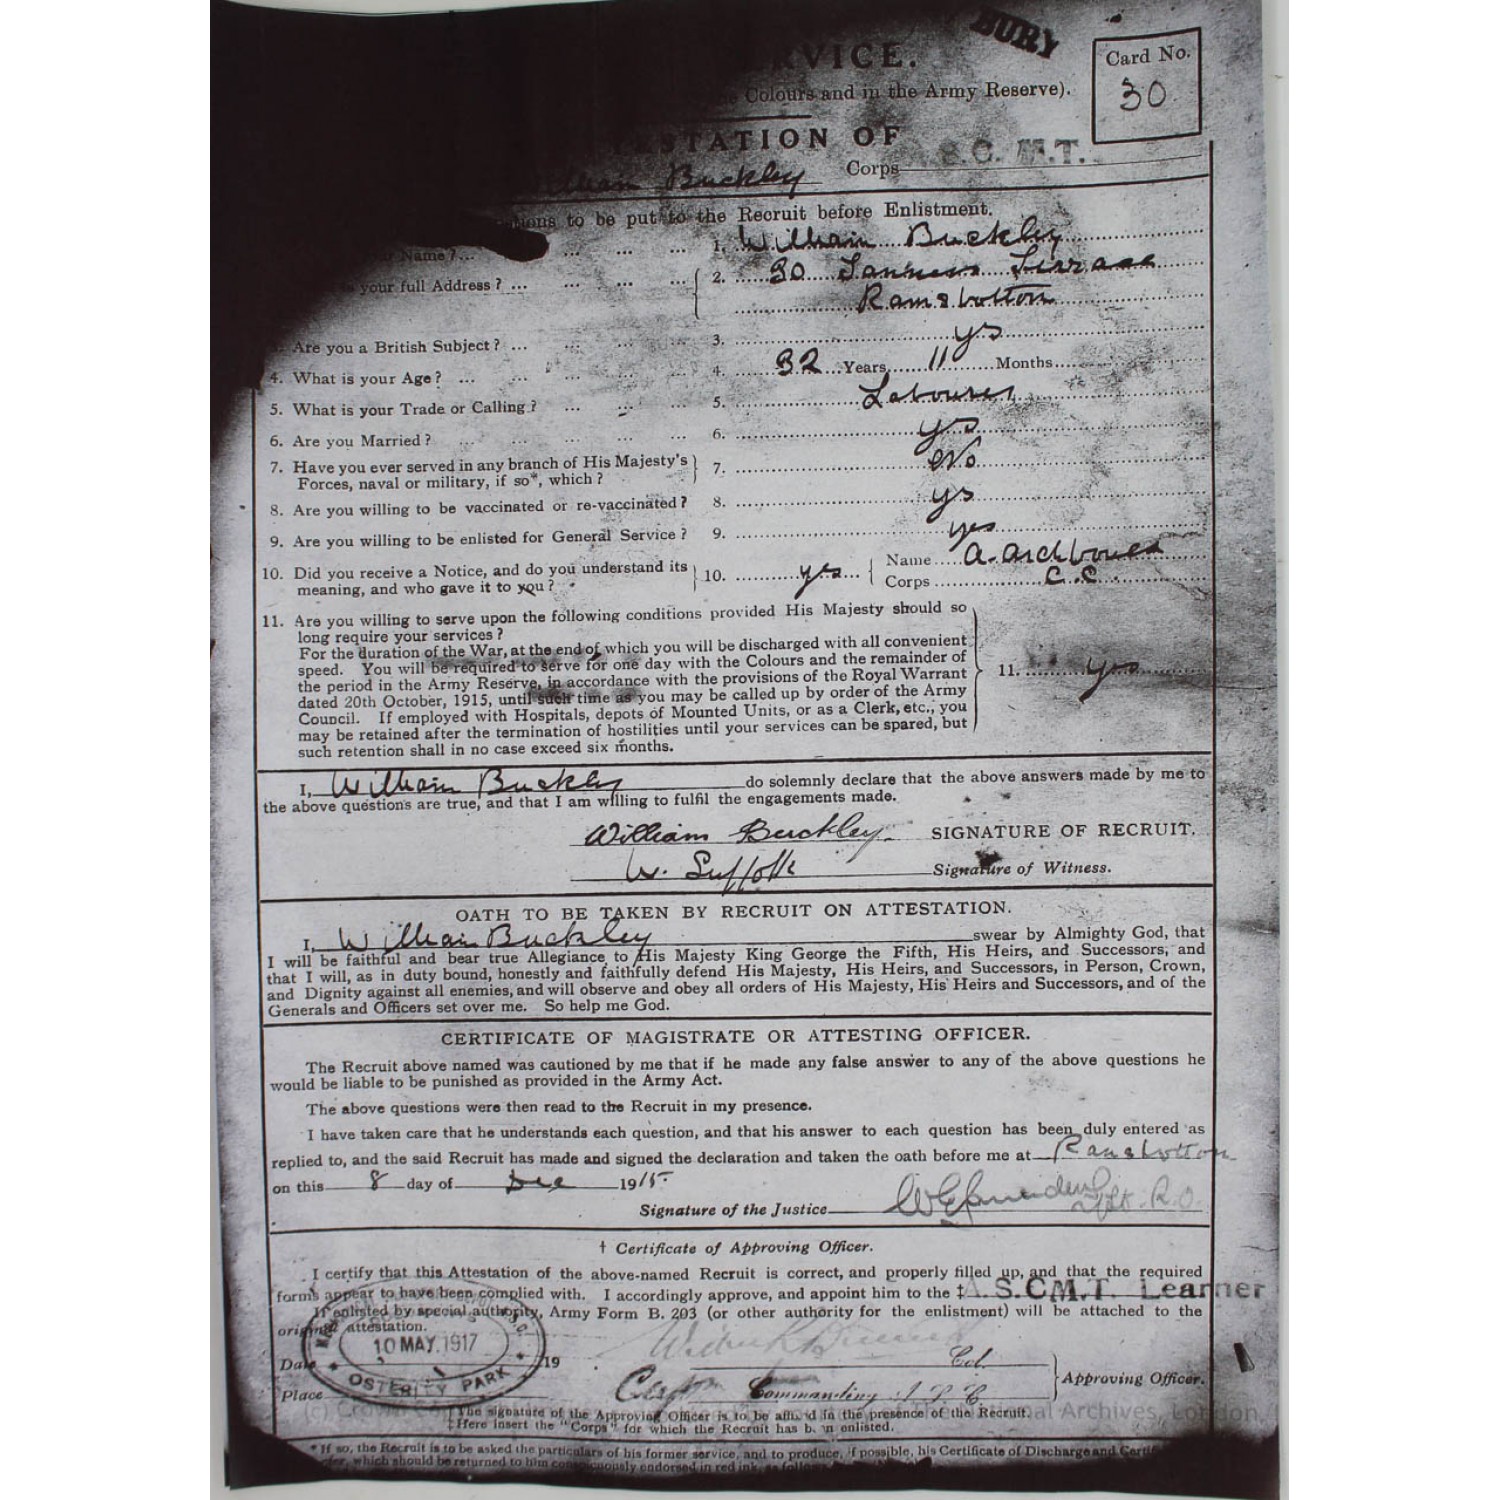 BURY
RVICE.
Colours and in the Army Reserve).
Card No.
30.
STATION OF
William Buckley Corps S.C. M.T.
ions to be put to the Recruit before Enlistment.
Name ? ... ... ... ... 1. William Buckley
your full Address ? ... ... ... ... 2. 30 Terrace
Ramsbottom
Are you a British Subject ? ... ... ... ... 3. yes
4. What is your Age ? ... ... ... ... ... 4. 32 Years 11 Months
5. What is your Trade or Calling ? ... ... ... 5. Labourer
6. Are you Married ? ... ... ... ... ... 6. yes
7. Have you ever served in any branch of His Majesty's
Forces, naval or military, if so*, which ? 7. No
8. Are you willing to be vaccinated or re-vaccinated ? 8. yes
9. Are you willing to be enlisted for General Service ? 9. yes
10. Did you receive a Notice, and do you understand its
meaning, and who gave it to you ? 10. yes Name A.
Corps
11. Are you willing to serve upon the following conditions provided His Majesty should so
long require your services ?
For the duration of the War, at the end of which you will be discharged with all convenient
speed. You will be required to serve for one day with the Colours and the remainder of
the period in the Army Reserve, in accordance with the provisions of the Royal Warrant
dated 20th October, 1915, until such time as you may be called up by order of the Army
Council. If employed with Hospitals, depots of Mounted Units, or as a Clerk, etc., you
may be retained after the termination of hostilities until your services can be spared, but
such retention shall in no case exceed six months.
11. yes
I, William Buckley do solemnly declare that the above answers made by me to
the above questions are true, and that I am willing to fulfil the engagements made.
William Buckley. SIGNATURE OF RECRUIT.
W. Suffolk Signature of Witness.
OATH TO BE TAKEN BY RECRUIT ON ATTESTATION.
I, William Buckley swear by Almighty God, that
I will be faithful and bear true Allegiance to His Majesty King George the Fifth, His Heirs, and Successors, and
that I will, as in duty bound, honestly and faithfully defend His Majesty, His Heirs, and Successors, in Person, Crown,
and Dignity against all enemies, and will observe and obey all orders of His Majesty, His Heirs and Successors, and of the
Generals and Officers set over me. So help me God.
CERTIFICATE OF MAGISTRATE OR ATTESTING OFFICER.
The Recruit above named was cautioned by me that if he made any false answer to any of the above questions he
would be liable to be punished as provided in the Army Act.
The above questions were then read to the Recruit in my presence.
I have taken care that he understands each question, and that his answer to each question has been duly entered as
replied to, and the said Recruit has made and signed the declaration and taken the oath before me at Ramsbottom
on this 8 day of Dec 1915
Signature of the Justice R.O.
† Certificate of Approving Officer.
I certify that this Attestation of the above-named Recruit is correct, and properly filled up, and that the required
forms appear to have been complied with. I accordingly approve, and appoint him to the ‡ A.S.C.M.T. Learner
If enlisted by special authority, Army Form B. 203 (or other authority for the enlistment) will be attached to the
original attestation.
10 MAY. 1917
OSTERLEY PARK
Date 19
Col.
Place Commanding Approving Officer.
† The signature of the Approving Officer is to be affixed in the presence of the Recruit.
‡ Here insert the "Corps" for which the Recruit has been enlisted.
(c) Crown National Archives, London
* If so, the Recruit is to be asked the particulars of his former service, and to produce, if possible, his Certificate of Discharge and
which should be returned to him conspicuously endorsed in red ink, as